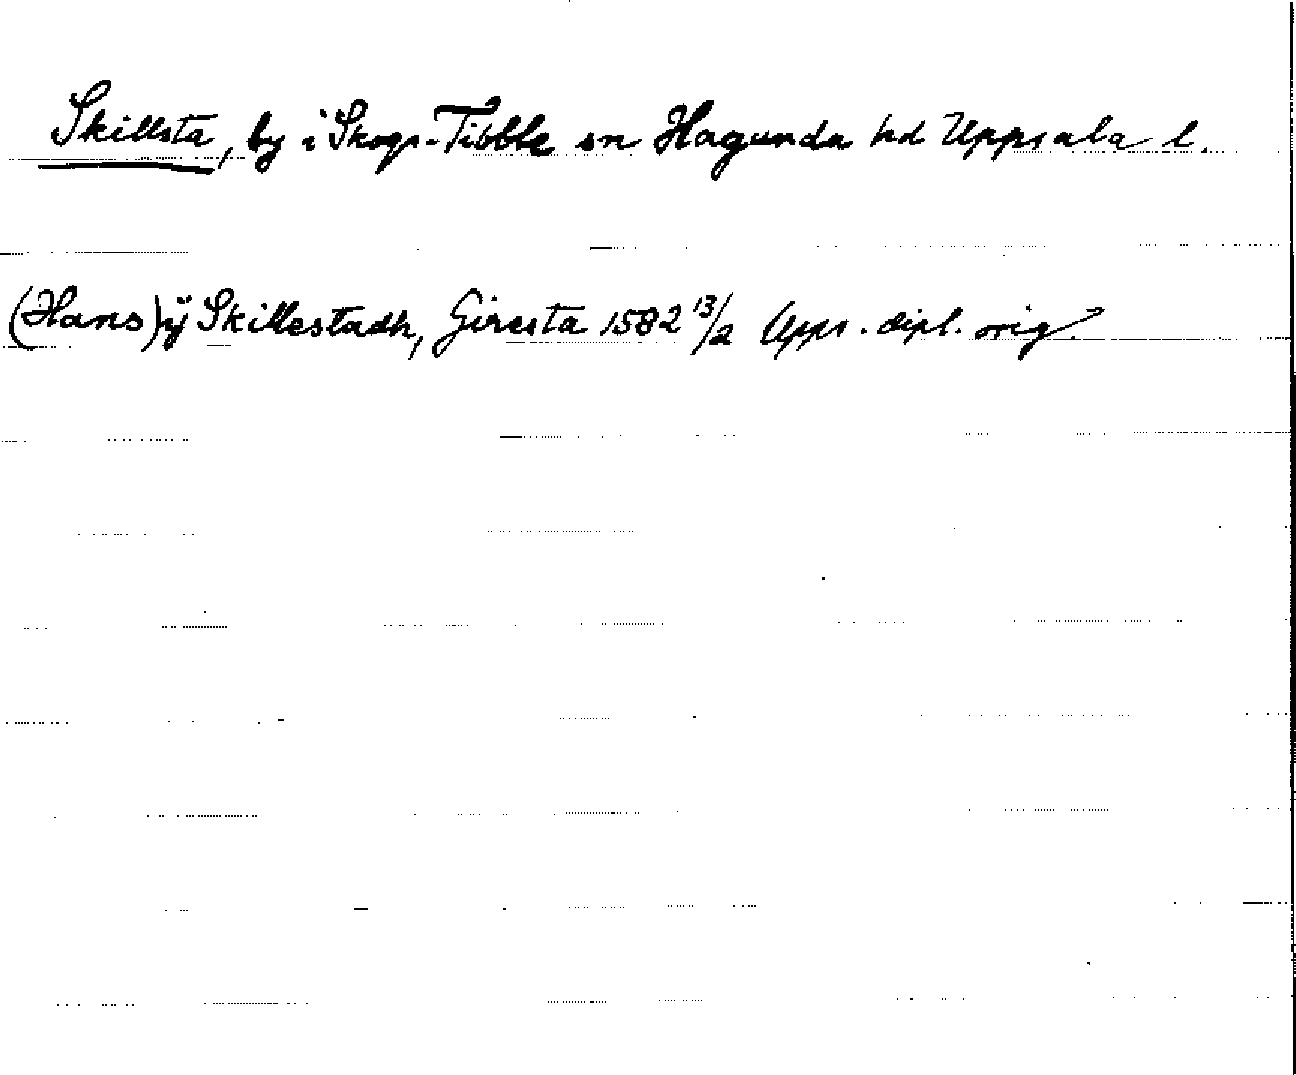 Skillsta, by i Skogs-Tibble sn Hagunda hd Uppsala l.
(Hans) ÿ Skillestadh, Giresta 1582 13/2 Upps. dipl. orig.